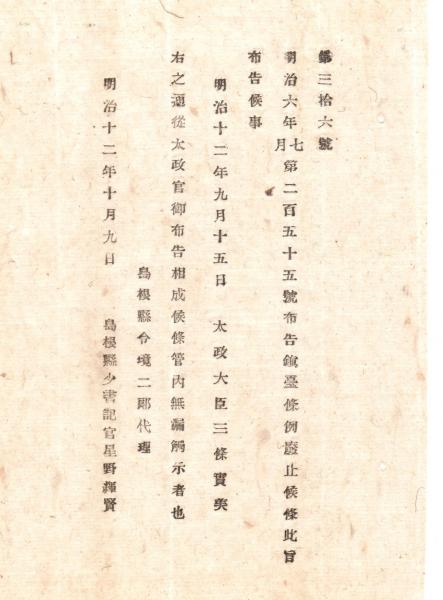 第三拾六號
明治六年七月第二百五十五號布告鎭臺條例廢止候條此旨
布告候事
明治十二年九月十五日　太政大臣三條實美
右之通從太政官御布告相成候條管内無漏觸示者也
島根縣令境二郎代理
明治十二年十月九日　島根縣少書記官星野輝賢